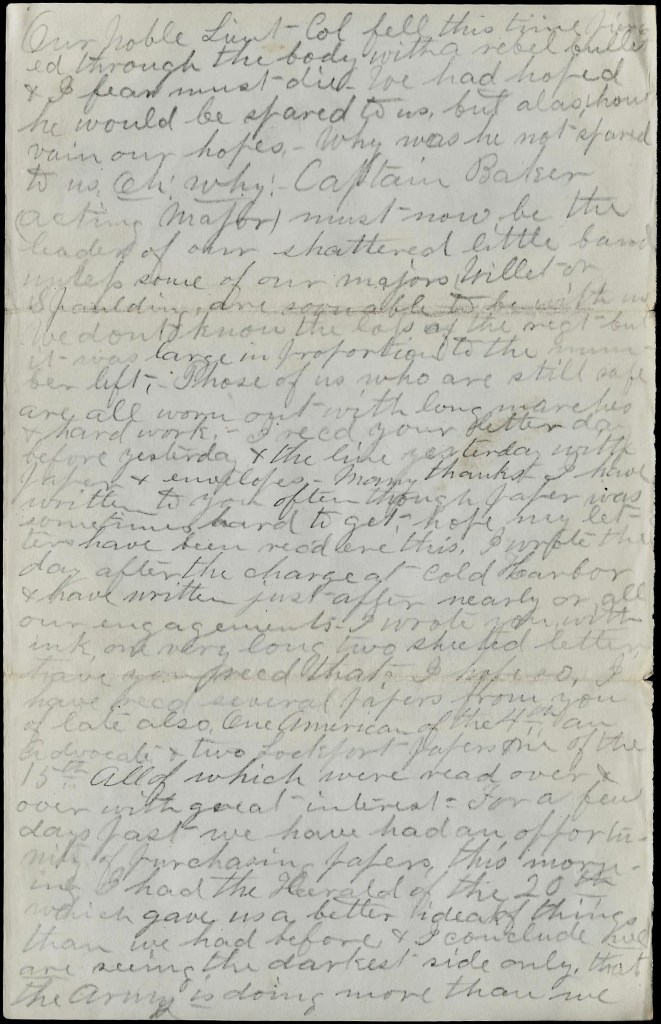 Our noble Lieut-Col fell this time pierc
ed through the body with a rebel bullet
& I fear must die. We had hoped
he would be spared to us, but alas, how
vain our hopes. - Why was he not spared
to us, Oh! why! - Captain Baker
(acting Major) must now be the
leader of our shattered little band
unless some of our majors, Willet or
Spaulding, are soon able to be with us
We dont know the loss of the regt but
it was large in proportion to the num-
ber left; - Those of us who are still safe
are all worn out with long marches
& hard work. - I recd your letter day
before yesterday & the line yesterday with
paper & envelopes, - Many thanks I have
written to you often though paper was
sometimes hard to get, hope my let-
ters have been rec'd ere this. I wrote the
day after the charge at Cold Harbor
& have written just after nearly or all
our engagements - I wrote you with
ink, one very long two sheeted letter,
have you recd that - I hope so. I
have recd several papers from you
of late also, One American of the 4th an
Advocate & two Lockport papers one of the
15th All of which were read over &
over with great interest = For a few
days past we have had an opportu-
nity of purchasing papers, this morn-
ing I had the Herald of the 20th
which gave us a better idea of things
than we had before & I conclude we
are seeing the darkest side only, that
the Army is doing more than we